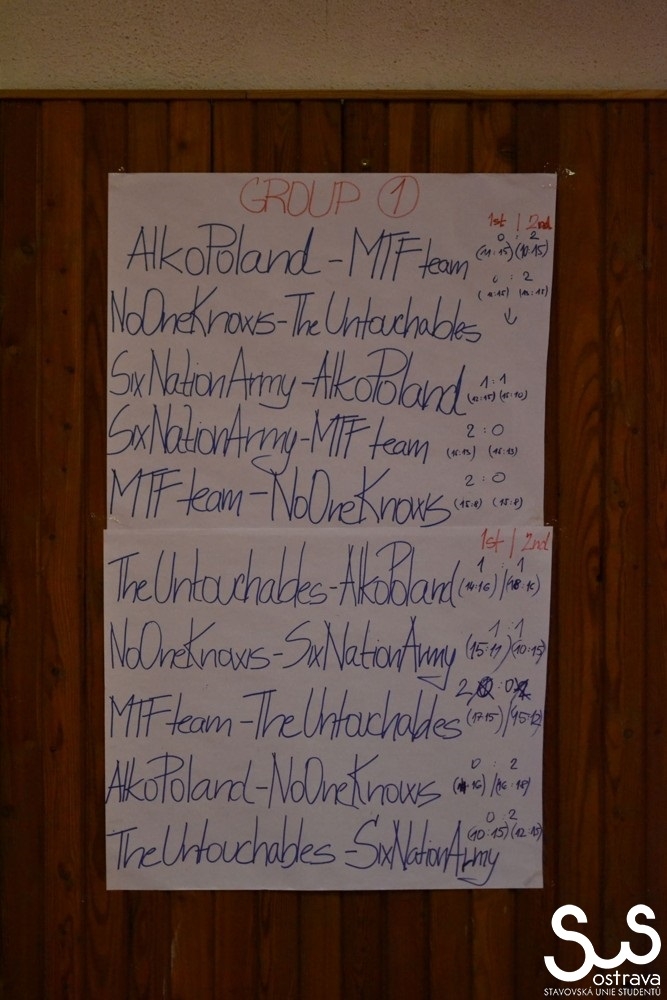 GROUP 1
1st | 2nd
AlkoPoland - MTF team 0 : 2
(11:15) (10:15)
NoOneKnows - The Untouchables 0 : 2
SixNationArmy - AlkoPoland 1 : 1
(12:15) (15:10)
SixNationArmy - MTF team 2 : 0
(15:13) (15:13)
MTF team - NoOneKnows 2 : 0
(15:8) (15:8)
1st / 2nd
The Untouchables - AlkoPoland 1 : 1
(14:16) / (18:16)
NoOneKnows - SixNationArmy 1 : 1
(15:11) (10:15)
MTF team - The Untouchables 2 : 0
(17:15) /
AlkoPoland - NoOneKnows 0 : 2
The Untouchables - SixNationArmy 0 : 2
(10:15) (12:15)
SuS
ostrava
STAVOVSKÁ UNIE STUDENTŮ